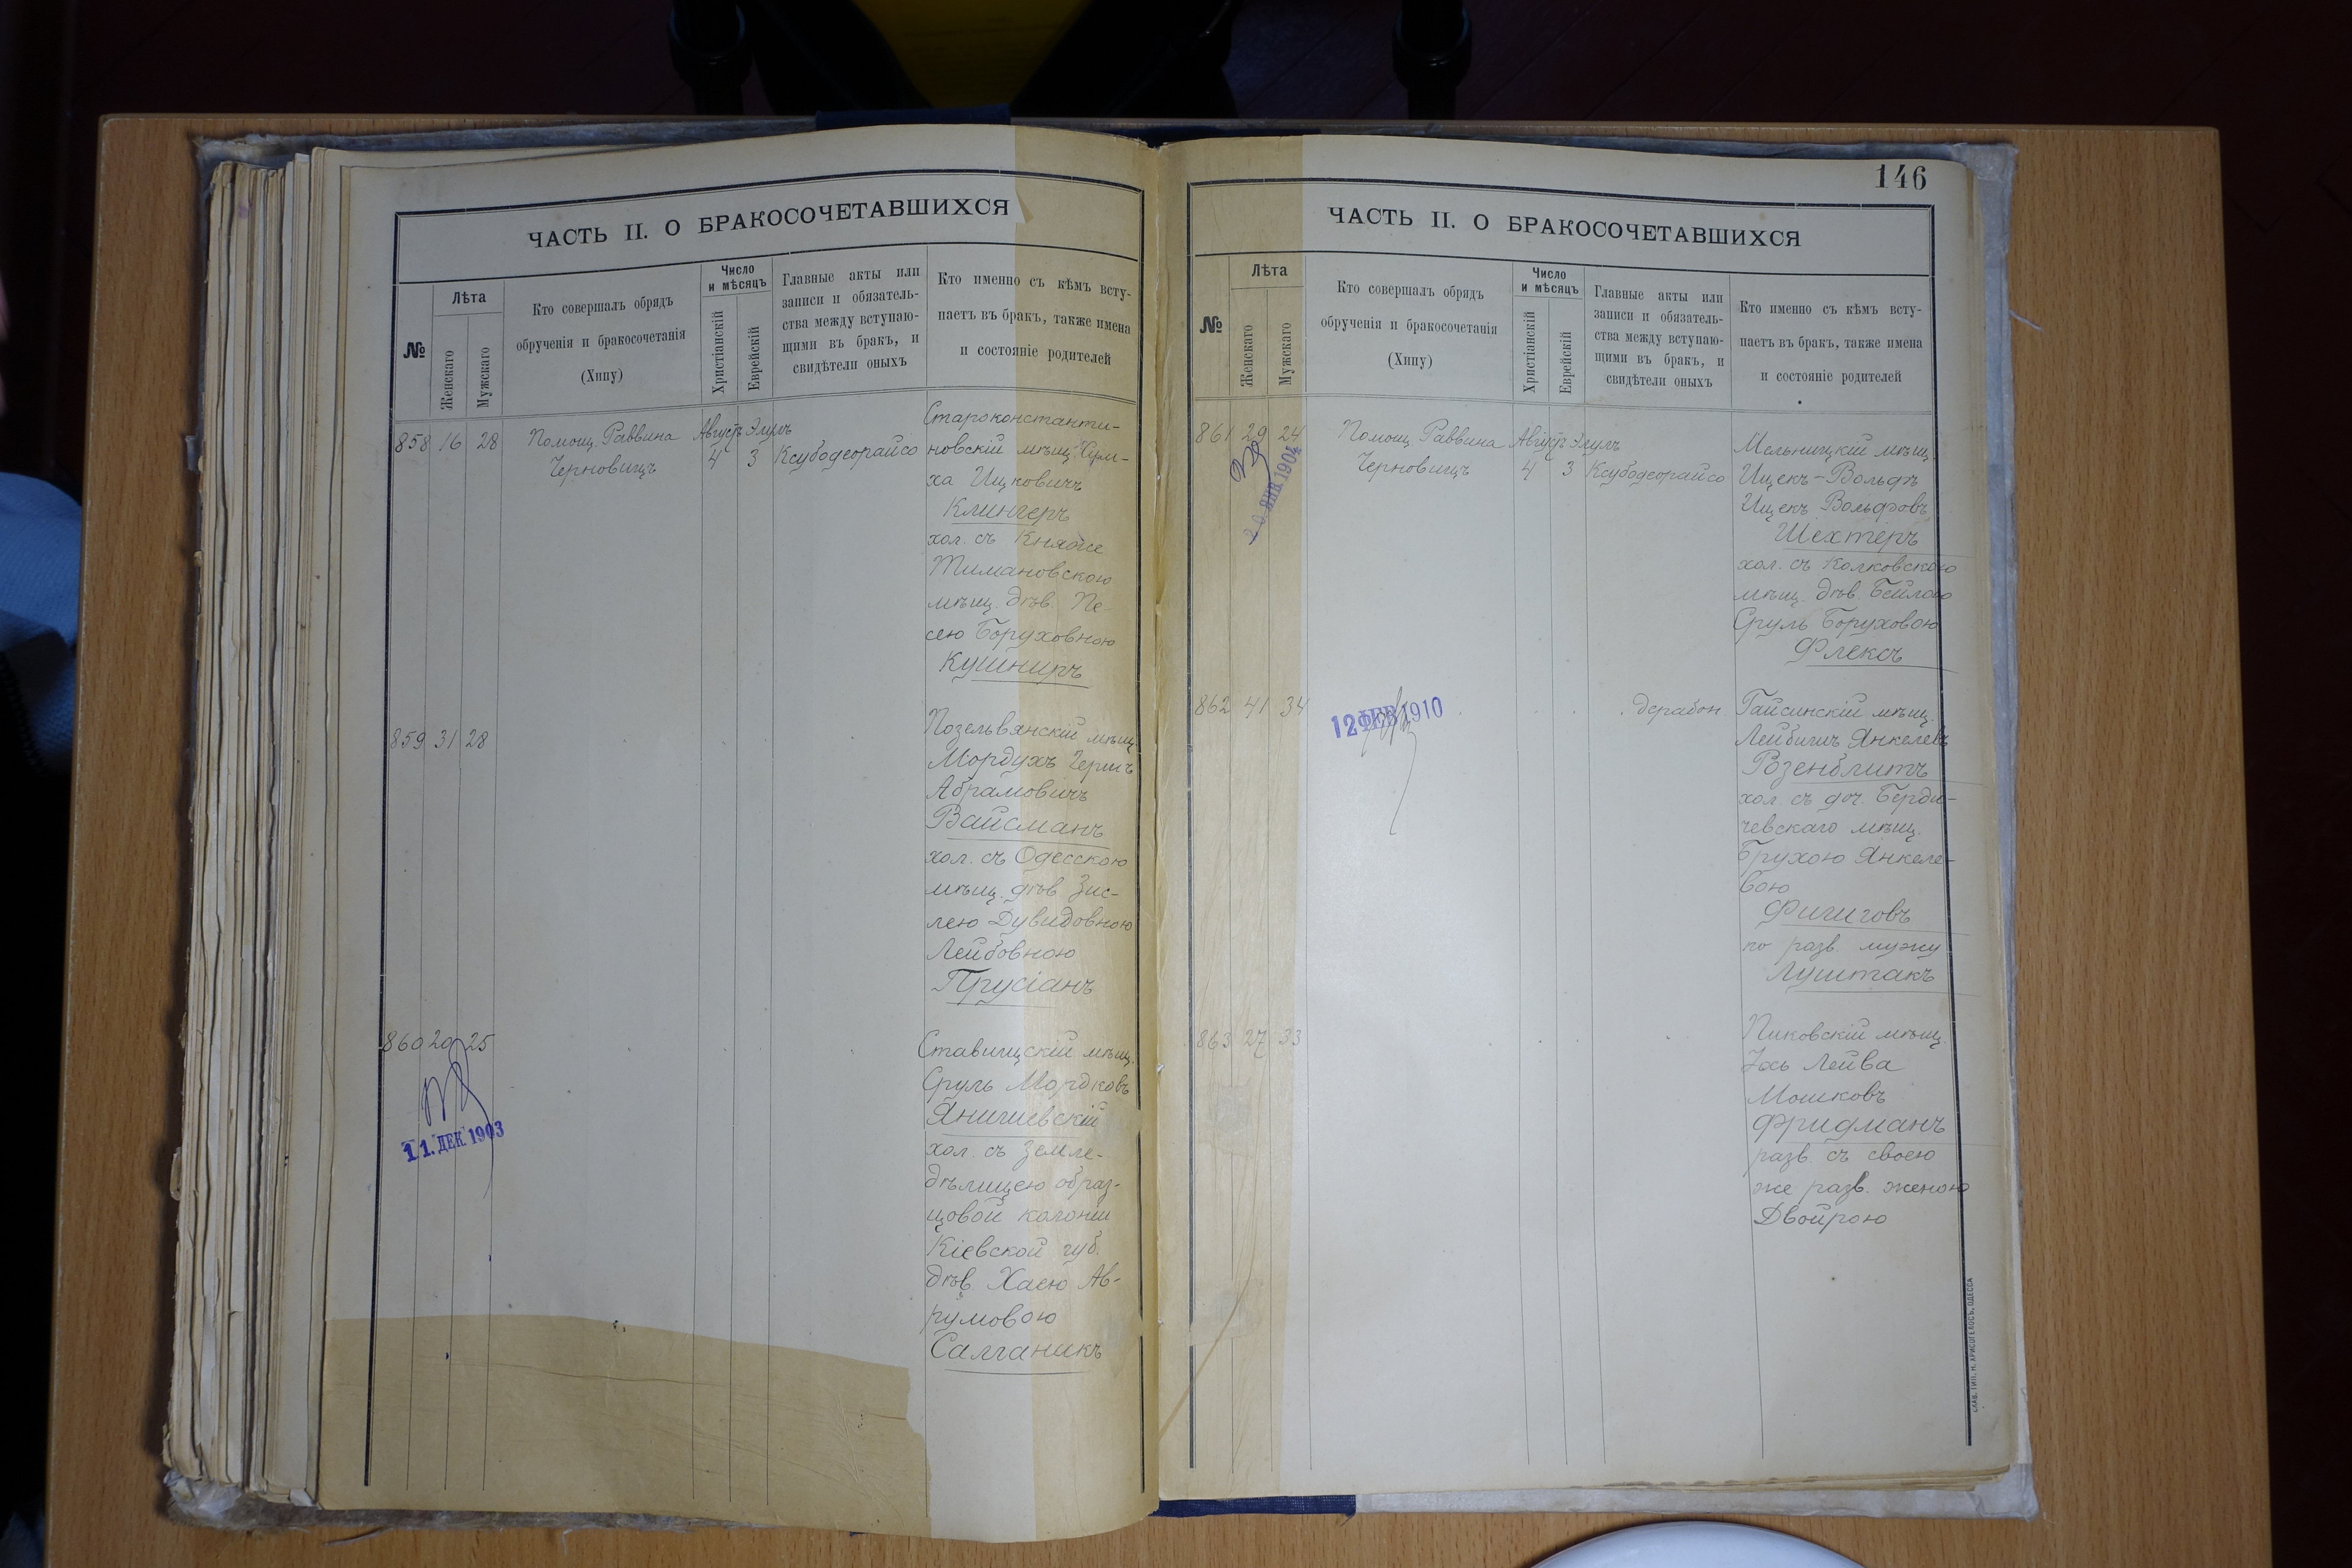 ЧАСТЬ II. О БРАКОСОЧЕТАВШИХСЯ
№
Лѣта
Женскаго
Мужскаго
Кто совершалъ обрядъ
обрученія и бракосочетанія
(Хипу)
Число
и мѣсяцъ
Христіанскій
Еврейскій
Главные акты или
записи и обязатель-
ства между вступаю-
щими въ бракъ, и
свидѣтели оныхъ
Кто именно съ кѣмъ всту-
паетъ въ бракъ, также имена
и состояніе родителей
858 16 28
Помощ. Раввина
Черновицъ
Августъ Элулъ
4 3
Ксубодеорайсо
Староконстанти-
новскій мѣщ. Сум-
ха Ицковичъ
Клингеръ
хол. съ Княже
Тимановскою
мѣщ. дѣв. Пе
сею Боруховною
Кушниръ
859 31 28
Позельвянскій мѣщ.
Мордухъ Гершъ
Абрамовичъ
Вайсманъ
хол. съ Одесскою
мѣщ. дѣв. Зис-
лею Дувидовною
Лейбовною
Прусіанъ
860 20 25
11. ДЕК. 1903
Ставищскій мѣщ.
Сруль Мордковъ
Янишевскій
хол. съ земле-
дѣлицею образ-
цовой колоніи
Кіевской губ.
дѣв. Хаею Ав-
румовою
Салганикъ
146
ЧАСТЬ II. О БРАКОСОЧЕТАВШИХСЯ
№
Лѣта
Женскаго
Мужскаго
Кто совершалъ обрядъ
обрученія и бракосочетанія
(Хипу)
Число
и мѣсяцъ
Христіанскій
Еврейскій
Главные акты или
записи и обязатель-
ства между вступаю-
щими въ бракъ, и
свидѣтели оныхъ
Кто именно съ кѣмъ всту-
паетъ въ бракъ, также имена
и состояніе родителей
861 29 24
20 ЯНВ 1904
Помощ. Раввина
Черновицъ
Августъ Элулъ
4 3
Ксубодеорайсо
Мельницкій мѣщ.
Ицекъ-Вольфъ
Ицекъ Вольфовъ
Шехтеръ
хол. съ Колковскою
мѣщ. дѣв. Бейлою
Сруль Боруховою
Флексъ
862 41 34
12 ФЕВ 1910
дерабон.
Гайсинскій мѣщ.
Лейбишъ Янкелевъ
Розенблитъ
хол. съ доч. Берди-
чевскаго мѣщ.
Брухою Янкеле-
вою
Фишговъ
по разв. мужу
Луштакъ
863 27 33
Пиковскій мѣщ.
Іось Лейва
Мошковъ
Фридманъ
разв. съ своею
же разв. женою
Двойрою
СЛАВ. ТИП. Н. ХРИСОГЕЛОСЪ, ОДЕССА